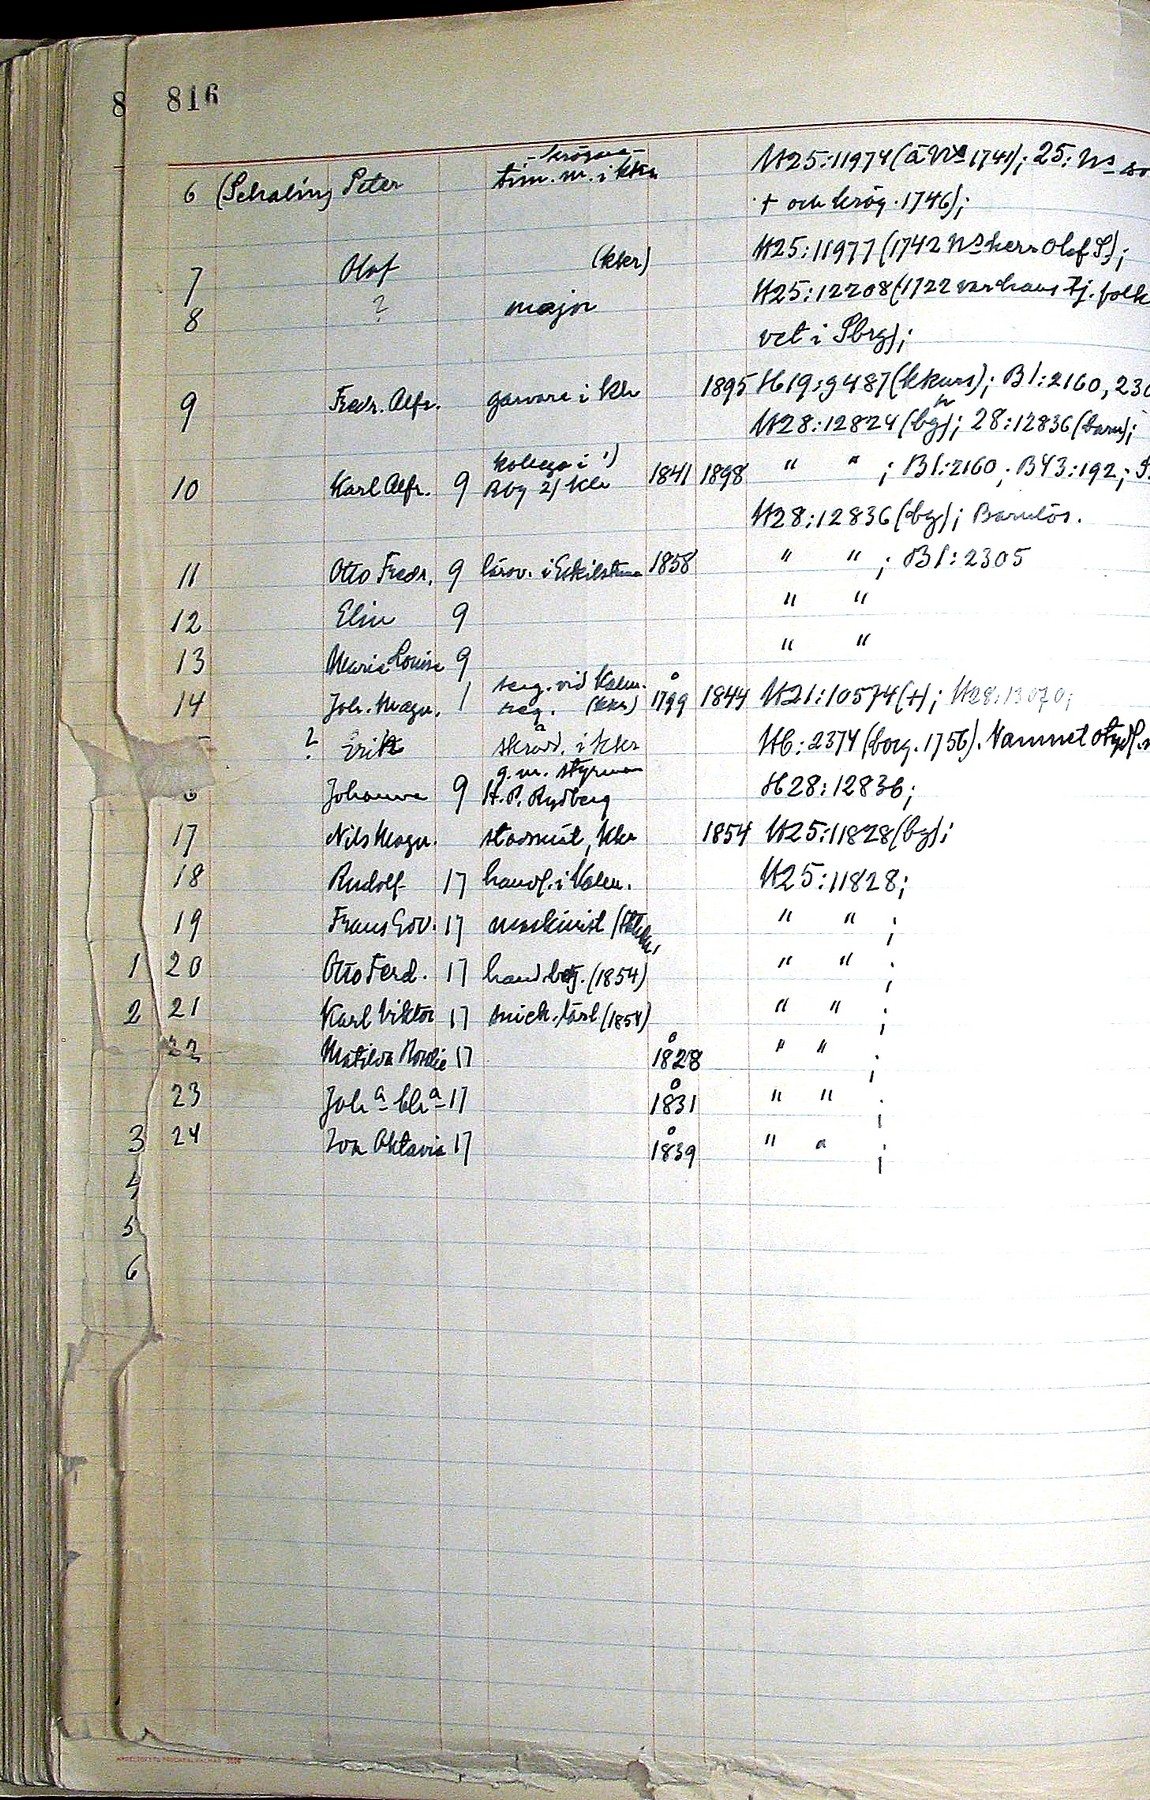 8 816
-krögare-
6 (Schalin) Peter tim. m. i kkr H25:11974 (ä Ns 1741); 25: Ns
+ och krög. 1746);
7 Olof (kkr) H25:11977 (1742 Ns herr Olof S);
8 ? major H25:12208 (1722 var hans tj. folk
vet i Sbrg);
9 Fredr. Alfr. garvare i kkr 1895 H19:9487 (kkurs); B1:2160, 230
H28:12824 (bg); 28:12836 (barn);
kollega i 1)
10 Karl Alfr. 9 Rby 2) kkr 1841 1898 " " ; B1:2160; B43:192;
H28:12836 (bg); Barnlös.
11 Otto Fredr. 9 lärov. i Eskilstuna 1858 " " ; B1:2305
12 Elin 9 " "
13 Maria Louise 9 " "
serg. vid Kalm.
14 Joh. Magn. 1 reg. (kkr) 1799 1844 H21:10574 (+); H28:13070;
? Erik skräd. i kkr H6:2374 (borg. 1756). Namnet otydl.
g. m. styrman
6 Johanna 9 H. P. Rydberg H28:12836;
17 Nils Magn. stadsmäk, kkr 1854 H25:11828 (bg);
18 Rudolf 17 handl. i Kalm. H25:11828;
19 Frans Edv. 17 maskinist " " ;
1 20 Otto Ferd. 17 hand.betj. (1854) " " ;
2 21 Karl Viktor 17 snick. lärl (1854) " " ;
22 Matilda 17 1828 " " ;
23 Joha Chra 17 1831 " " ;
3 24 Ida Oktavia 17 1839 " " ;
4
5
6